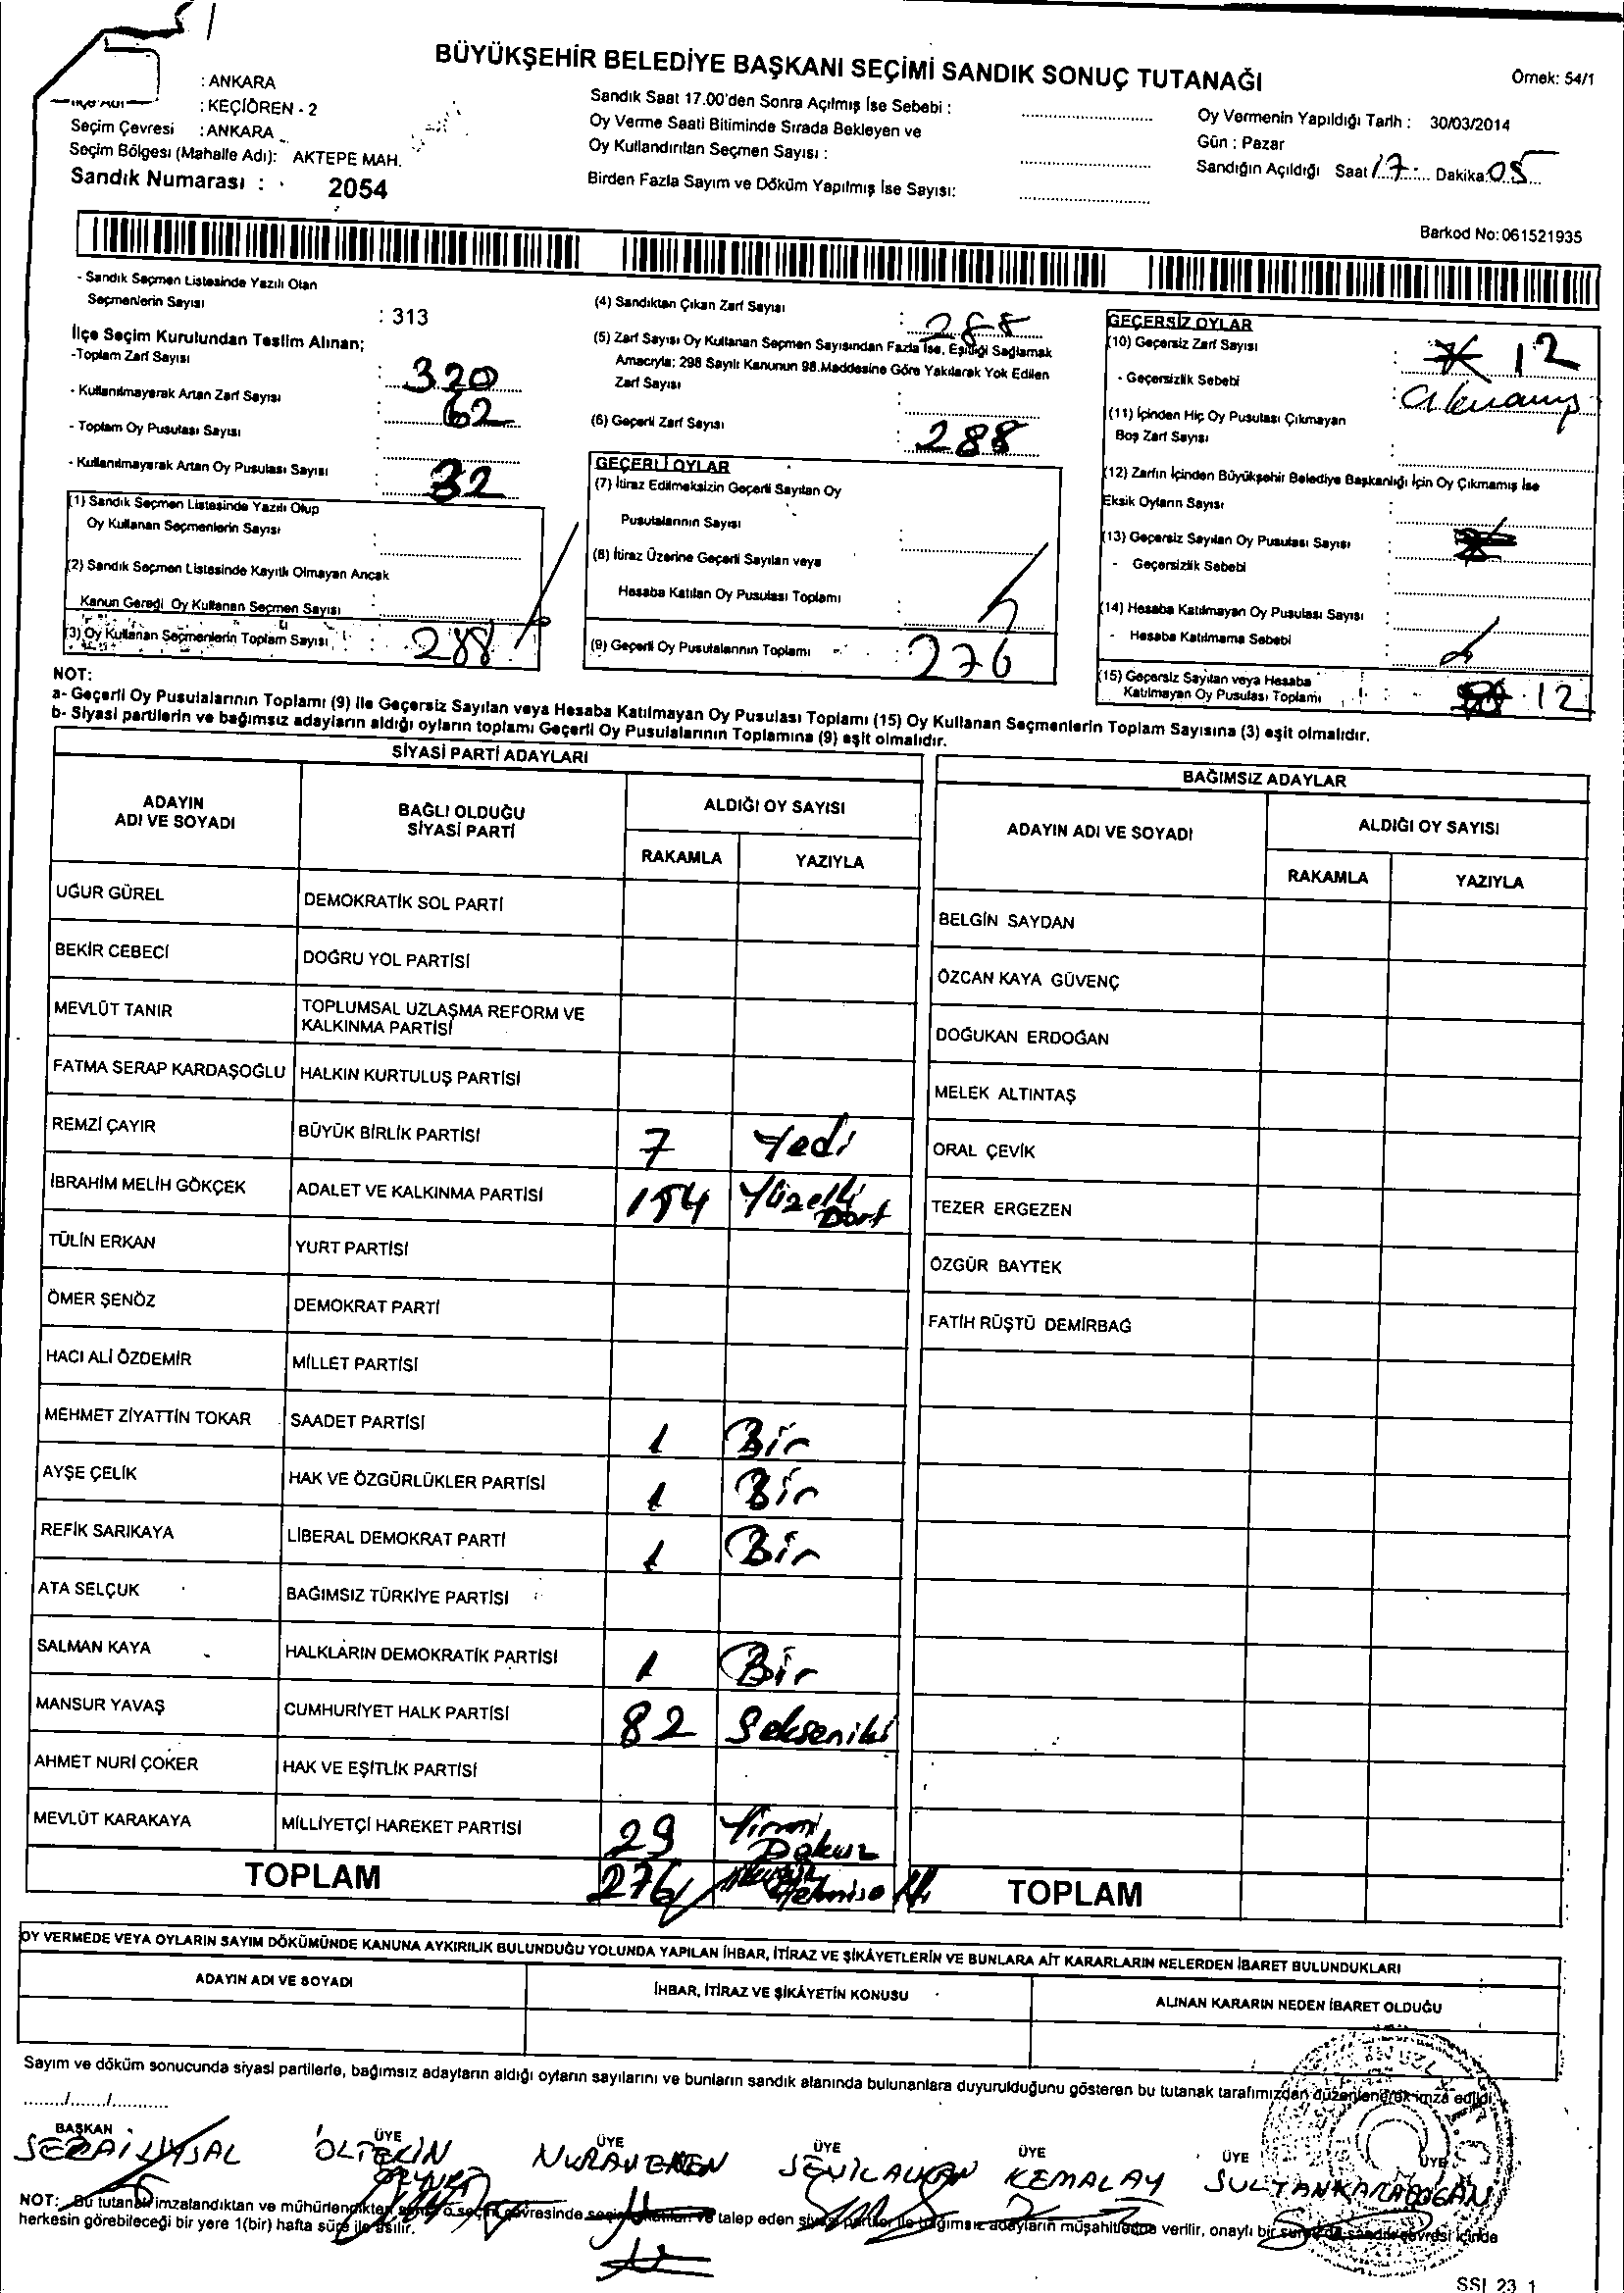 BÜYÜKŞEHİR BELEDİYE BAŞKANI SEÇİMİ SANDIK SONUÇ TUTANAĞI
Örnek: 54/1
: ANKARA
: KEÇİÖREN - 2
Seçim Çevresi : ANKARA
Seçim Bölgesi (Mahalle Adı): AKTEPE MAH.
Sandık Numarası : 2054
Sandık Saat 17.00'den Sonra Açılmış İse Sebebi :
Oy Verme Saati Bitiminde Sırada Bekleyen ve
Oy Kullandırılan Seçmen Sayısı :
Birden Fazla Sayım ve Döküm Yapılmış İse Sayısı:
Oy Vermenin Yapıldığı Tarih : 30/03/2014
Gün : Pazar
Sandığın Açıldığı Saat 17 Dakika: 05
Barkod No: 061521935
- Sandık Seçmen Listesinde Yazılı Olan
Seçmenlerin Sayısı : 313
İlçe Seçim Kurulundan Teslim Alınan;
-Toplam Zarf Sayısı : 320
- Kullanılmayarak Artan Zarf Sayısı : 62
- Toplam Oy Pusulası Sayısı :
- Kullanılmayarak Artan Oy Pusulası Sayısı : 32
(1) Sandık Seçmen Listesinde Yazılı Olup
Oy Kullanan Seçmenlerin Sayısı :
(2) Sandık Seçmen Listesinde Kayıtlı Olmayan Ancak
Kanun Gereği Oy Kullanan Seçmen Sayısı :
(3) Oy Kullanan Seçmenlerin Toplam Sayısı : 288
(4) Sandıktan Çıkan Zarf Sayısı : 288
(5) Zarf Sayısı Oy Kullanan Seçmen Sayısından Fazla İse, Eşitliği Sağlamak
Amacıyla; 298 Sayılı Kanunun 98.Maddesine Göre Yakılarak Yok Edilen
Zarf Sayısı :
(6) Geçerli Zarf Sayısı : 288
GEÇERLİ OYLAR
(7) İtiraz Edilmeksizin Geçerli Sayılan Oy
Pusulalarının Sayısı :
(8) İtiraz Üzerine Geçerli Sayılan veya
Hesaba Katılan Oy Pusulası Toplamı :
(9) Geçerli Oy Pusulalarının Toplamı : 276
GEÇERSİZ OYLAR
(10) Geçersiz Zarf Sayısı : 12
- Geçersizlik Sebebi :
(11) İçinden Hiç Oy Pusulası Çıkmayan
Boş Zarf Sayısı :
(12) Zarfın İçinden Büyükşehir Belediye Başkanlığı İçin Oy Çıkmamış İse
Eksik Oyların Sayısı :
(13) Geçersiz Sayılan Oy Pusulası Sayısı :
- Geçersizlik Sebebi :
(14) Hesaba Katılmayan Oy Pusulası Sayısı :
- Hesaba Katılmama Sebebi :
(15) Geçersiz Sayılan veya Hesaba
Katılmayan Oy Pusulası Toplamı : 12
NOT:
a- Geçerli Oy Pusulalarının Toplamı (9) ile Geçersiz Sayılan veya Hesaba Katılmayan Oy Pusulası Toplamı (15) Oy Kullanan Seçmenlerin Toplam Sayısına (3) eşit olmalıdır.
b- Siyasi partilerin ve bağımsız adayların aldığı oyların toplamı Geçerli Oy Pusulalarının Toplamına (9) eşit olmalıdır.
SİYASİ PARTİ ADAYLARI
ADAYIN ADI VE SOYADI
BAĞLI OLDUĞU SİYASİ PARTİ
ALDIĞI OY SAYISI
RAKAMLA YAZIYLA
UĞUR GÜREL DEMOKRATİK SOL PARTİ
BEKİR CEBECİ DOĞRU YOL PARTİSİ
MEVLÜT TANIR TOPLUMSAL UZLAŞMA REFORM VE KALKINMA PARTİSİ
FATMA SERAP KARDAŞOĞLU HALKIN KURTULUŞ PARTİSİ
REMZİ ÇAYIR BÜYÜK BİRLİK PARTİSİ 7 Yedi
İBRAHİM MELİH GÖKÇEK ADALET VE KALKINMA PARTİSİ 154 Yüzelli Dört
TÜLİN ERKAN YURT PARTİSİ
ÖMER ŞENÖZ DEMOKRAT PARTİ
HACI ALİ ÖZDEMİR MİLLET PARTİSİ
MEHMET ZİYATTİN TOKAR SAADET PARTİSİ 1 Bir
AYŞE ÇELİK HAK VE ÖZGÜRLÜKLER PARTİSİ 1 Bir
REFİK SARIKAYA LİBERAL DEMOKRAT PARTİ 1 Bir
ATA SELÇUK BAĞIMSIZ TÜRKİYE PARTİSİ
SALMAN KAYA HALKLARIN DEMOKRATİK PARTİSİ 1 Bir
MANSUR YAVAŞ CUMHURİYET HALK PARTİSİ 82 Seksen iki
AHMET NURİ ÇOKER HAK VE EŞİTLİK PARTİSİ
MEVLÜT KARAKAYA MİLLİYETÇİ HAREKET PARTİSİ 29 Yirmi Dokuz
TOPLAM 276
BAĞIMSIZ ADAYLAR
ADAYIN ADI VE SOYADI
ALDIĞI OY SAYISI
RAKAMLA YAZIYLA
BELGİN SAYDAN
ÖZCAN KAYA GÜVENÇ
DOĞUKAN ERDOĞAN
MELEK ALTINTAŞ
ORAL ÇEVİK
TEZER ERGEZEN
ÖZGÜR BAYTEK
FATİH RÜŞTÜ DEMİRBAĞ
TOPLAM
OY VERMEDE VEYA OYLARIN SAYIM DÖKÜMÜNDE KANUNA AYKIRILIK BULUNDUĞU YOLUNDA YAPILAN İHBAR, İTİRAZ VE ŞİKÂYETLERİN VE BUNLARA AİT KARARLARIN NELERDEN İBARET BULUNDUKLARI
ADAYIN ADI VE SOYADI
İHBAR, İTİRAZ VE ŞİKÂYETİN KONUSU
ALINAN KARARIN NEDEN İBARET OLDUĞU
Sayım ve döküm sonucunda siyasi partilerle, bağımsız adayların aldığı oyların sayılarını ve bunların sandık alanında bulunanlara duyurulduğunu gösteren bu tutanak tarafımızdan düzenlenerek imza edildi.
......../......../............
BAŞKAN ÜYE ÜYE ÜYE ÜYE ÜYE ÜYE
KEMAL AY SULTAN KARADOĞAN
NOT: Bu tutanak imzalandıktan ve mühürlendikten çevresinde talep eden bağımsız adayların müşahitlerine verilir, onaylı bir çevresi içinde
herkesin görebileceği bir yere 1(bir) hafta süre ile asılır.
SSI 23 1